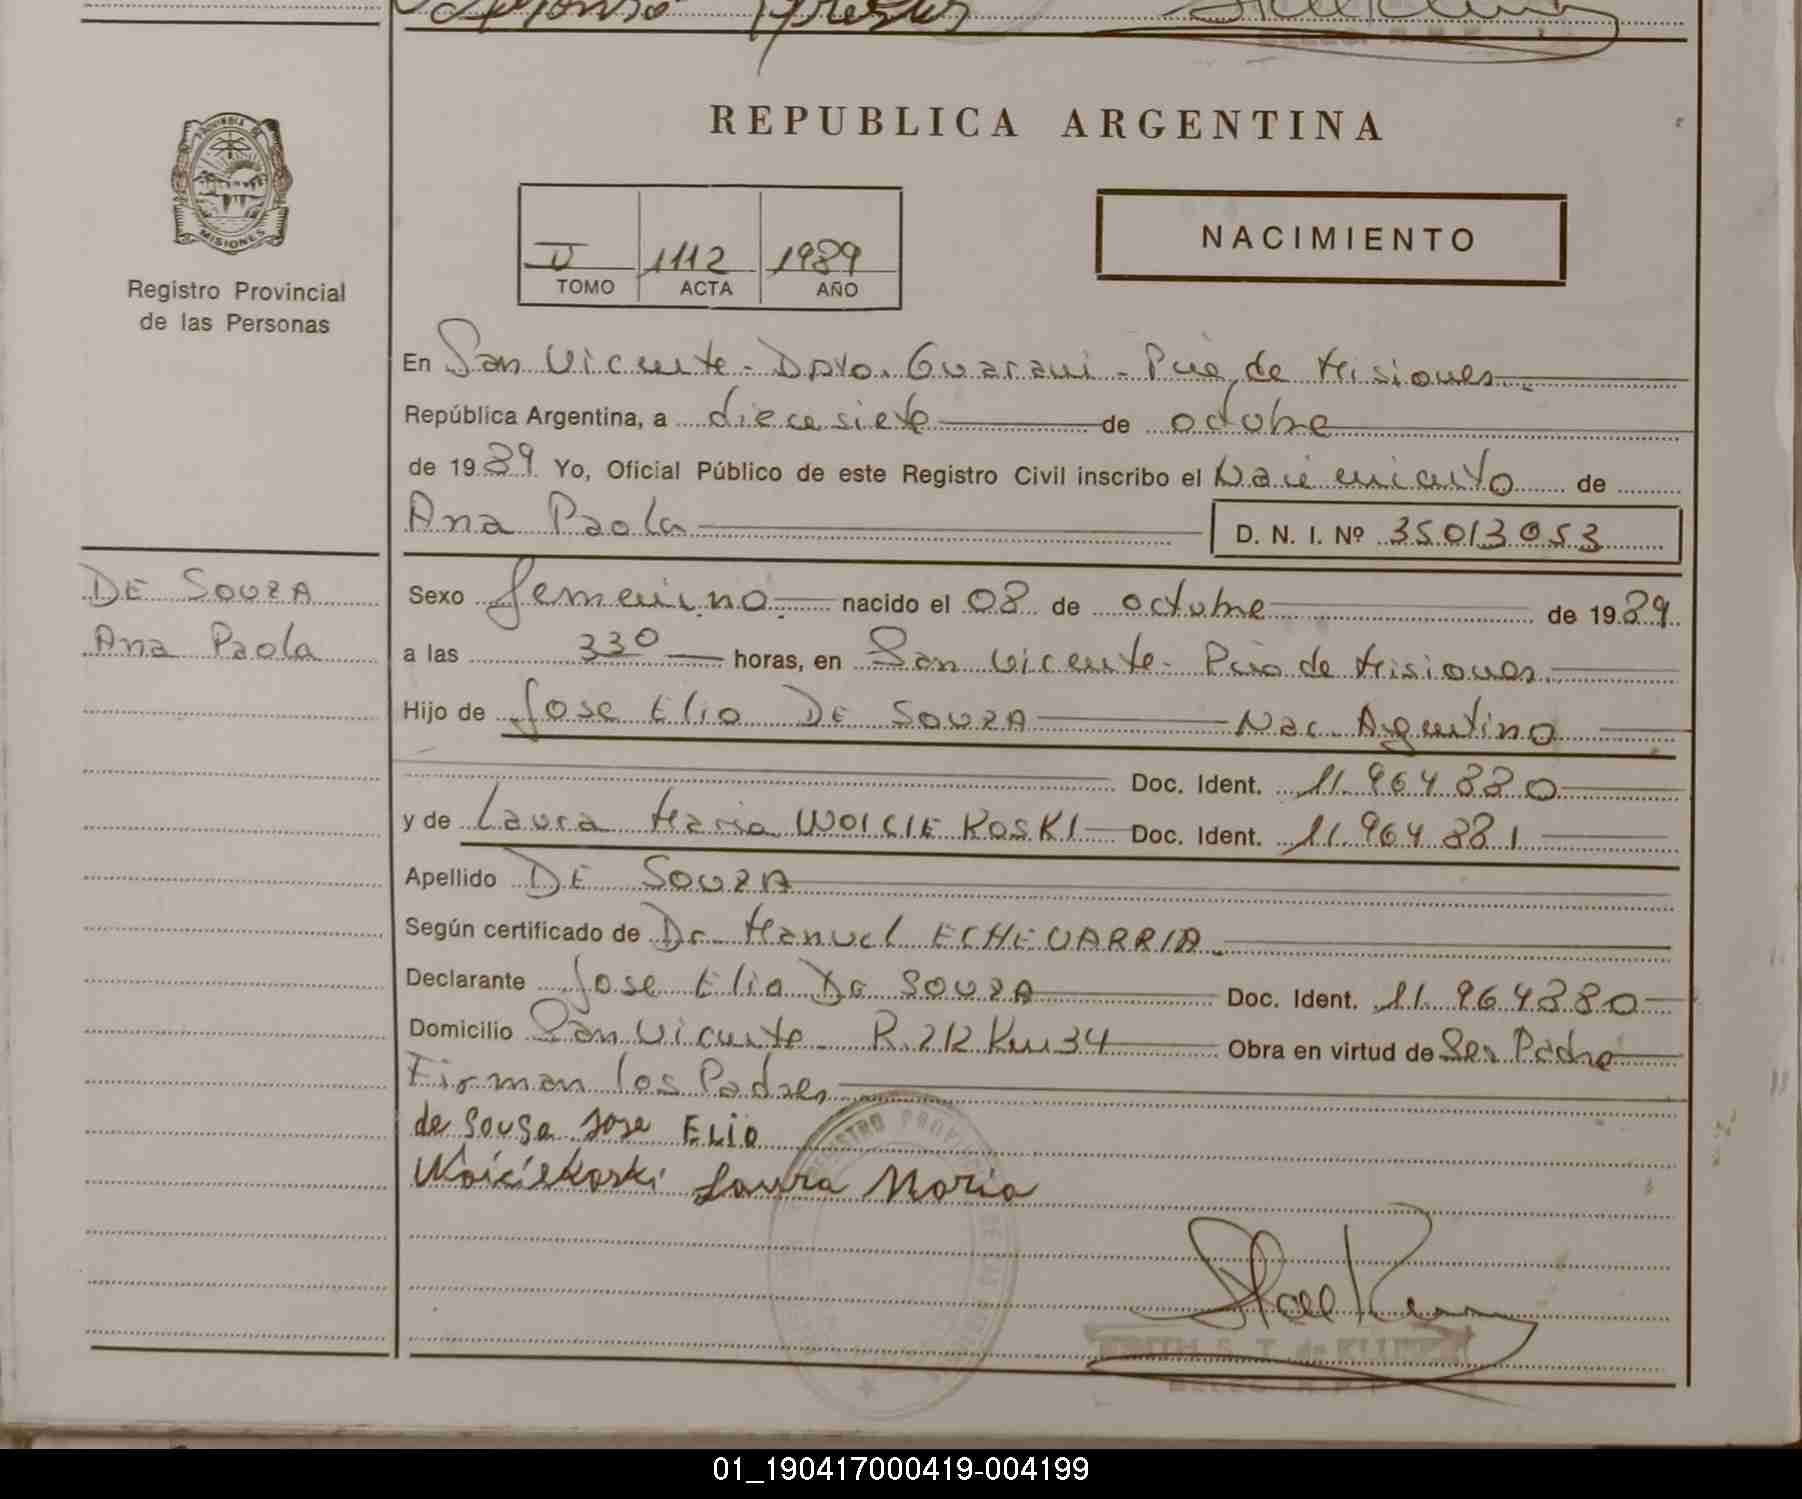 REPUBLICA ARGENTINA
PROVINCIA DE
MISIONES
Registro Provincial
de las Personas
II 1112 1989
TOMO ACTA AÑO
NACIMIENTO
En San Vicente - Dpto. Guarani - Pcia de Misiones
República Argentina, a diecisiete de octubre
de 1989 Yo, Oficial Público de este Registro Civil inscribo el Nacimiento de
Ana Paola D. N. I. Nº 35013053
DE SOUZA
Ana Paola
Sexo femenino nacido el 08 de octubre de 1989
a las 330 horas, en San Vicente - Pcia de Misiones
Hijo de Jose Elio DE SOUZA Nac. Argentino
Doc. Ident. 11.964.880
y de Laura Maria WOICIEKOSKI Doc. Ident. 11.964.881
Apellido DE SOUZA
Según certificado de Dr. Manuel ECHEVARRIA
Declarante Jose Elio DE SOUZA Doc. Ident. 11.964.880
Domicilio San Vicente R.212 Km 34 Obra en virtud de Ser Padre
Firman los Padres
de Sousa Jose ELio
Woiciekoski Laura Maria
01_190417000419-004199